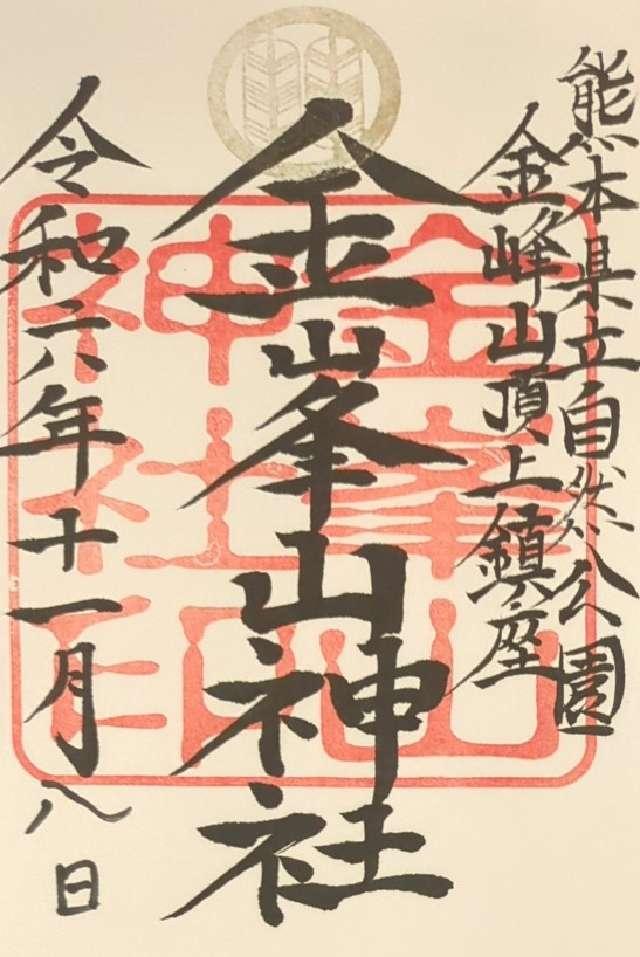 熊本県立自然公園
金峰山頂上鎮座
金峯山神社
令和六年十一月八日
金峯山
神社印